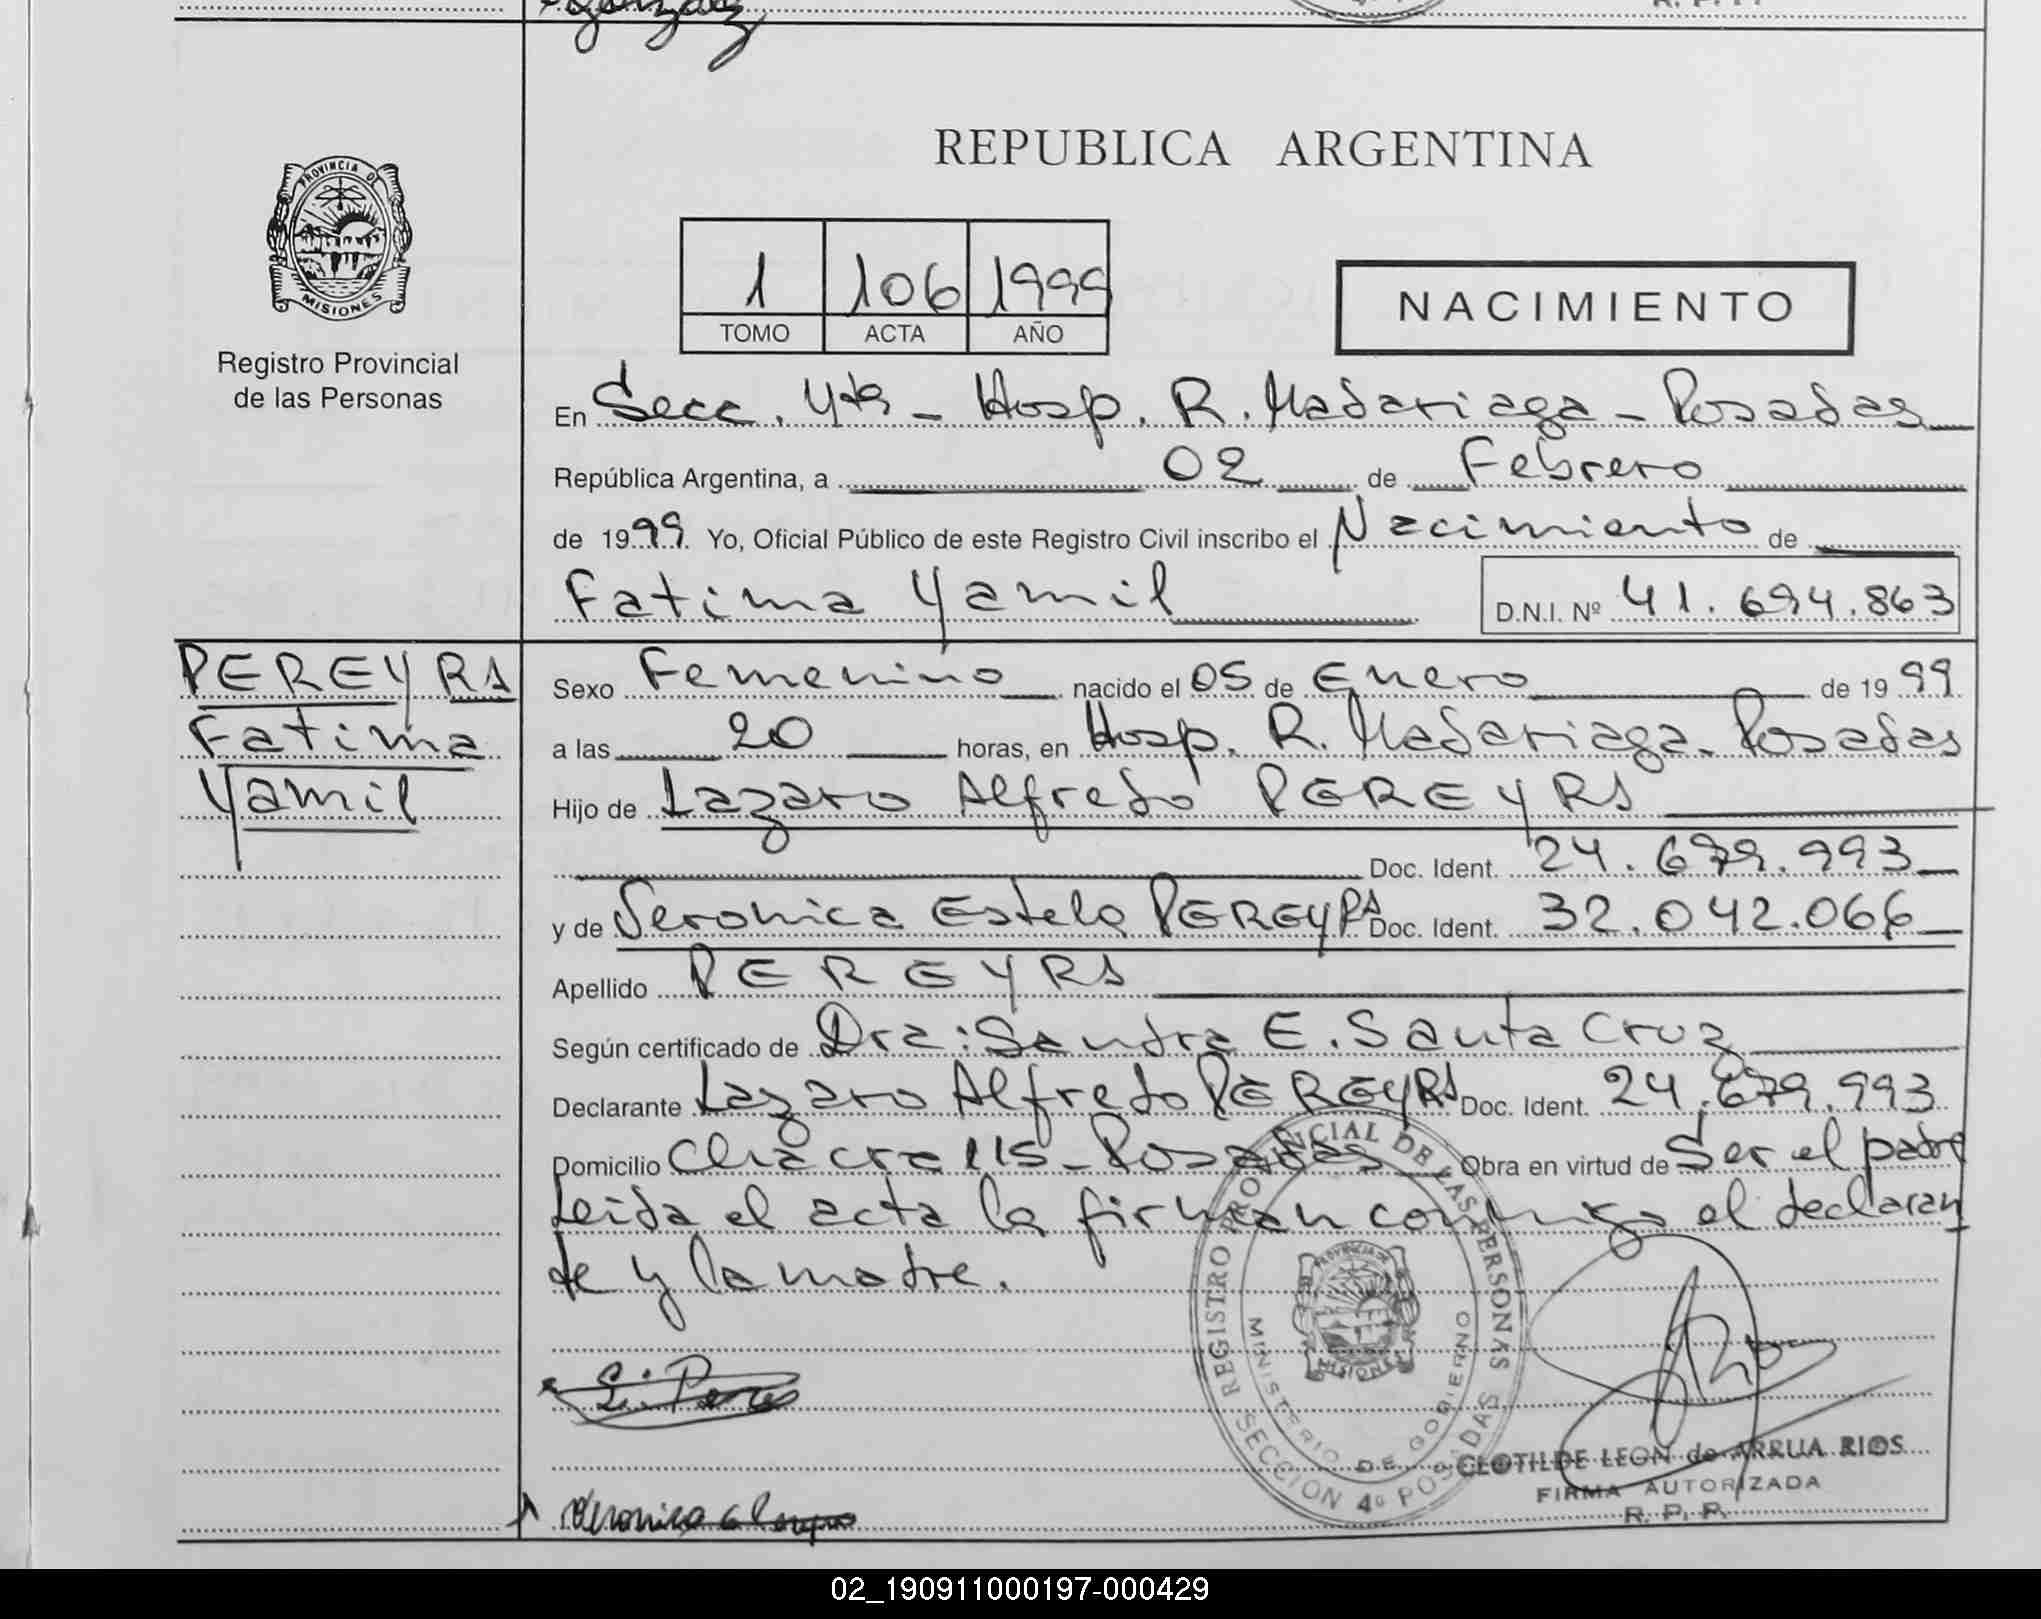 PROVINCIA DE
MISIONES
Registro Provincial
de las Personas
REPUBLICA ARGENTINA
1 106 1999
TOMO ACTA AÑO
NACIMIENTO
En Secc. 4ta - Hosp. R. Madariaga - Posadas
República Argentina, a 02 de Febrero
de 1999 Yo, Oficial Público de este Registro Civil inscribo el Nacimiento de
Fatima Yamil D.N.I. Nº 41.694.863
PEREYRA
Fatima
Yamil
Sexo Femenino nacido el 05 de Enero de 1999
a las 20 horas, en Hosp. R. Madariaga - Posadas
Hijo de Lazaro Alfredo PEREYRA
Doc. Ident. 24.679.993
y de Veronica Estela PEREYRA Doc. Ident. 32.042.066
Apellido PEREYRA
Según certificado de Dra: Sandra E. Santa Cruz
Declarante Lazaro Alfredo PEREYRA Doc. Ident. 24.679.993
Domicilio Chacra 115 - Posadas Obra en virtud de Ser el padre
Leida el acta la firman conmigo el declaran
te y la madre.
REGISTRO PROVINCIAL DE LAS PERSONAS
MINISTERIO DE GOBIERNO
SECCION 4º POSADAS
PROVINCIA DE
MISIONES
CLOTILDE LEON de ARRUA RIOS
FIRMA AUTORIZADA
R. P. P.
Veronica
02_190911000197-000429